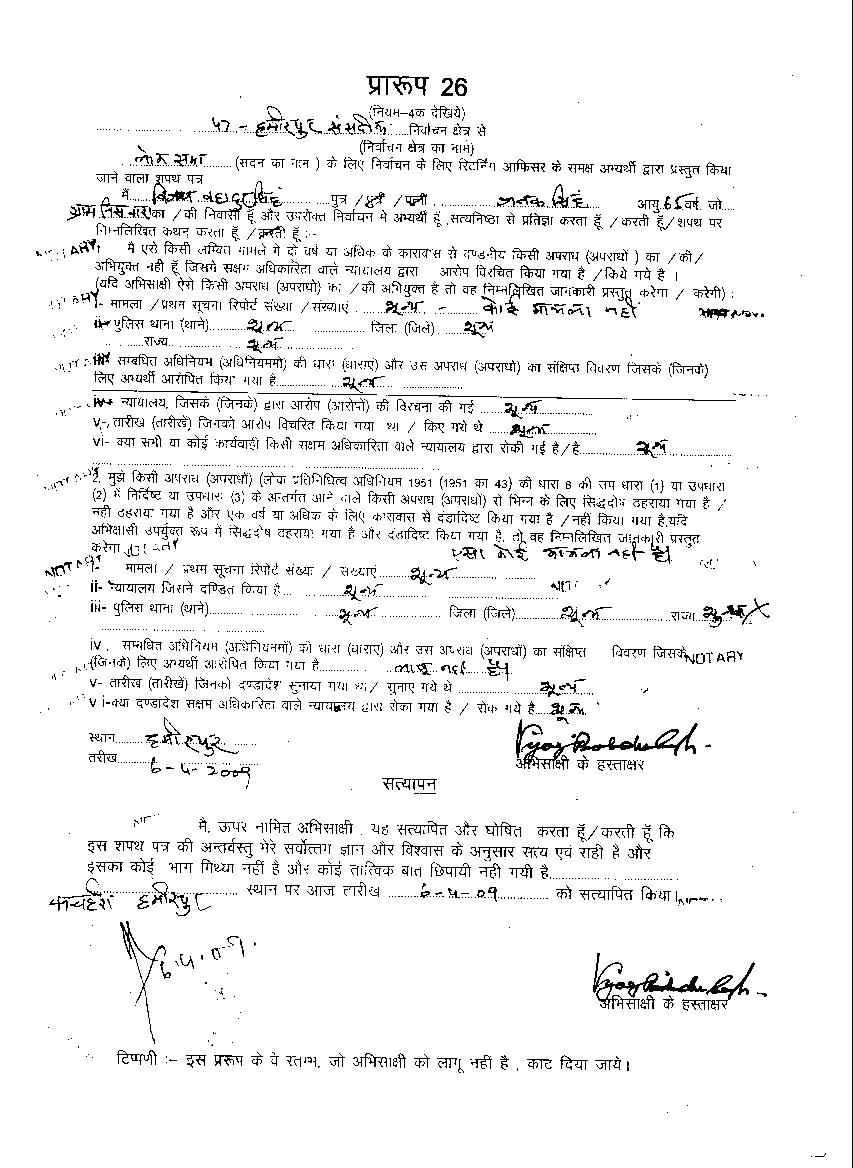 प्रारूप 26
(नियम-4क देखिये)
47- हमीरपुर संसदीय निर्वाचन क्षेत्र से
(निर्वाचन क्षेत्र का नाम)
लोक सभा (सदन का नाम) के लिए निर्वाचन के लिए रिटर्निंग आफिसर के समक्ष अभ्यर्थी द्वारा प्रस्तुत किया
जाने वाला शपथ पत्र
मैं विजय बहादुर सिंह पुत्र / पुत्री / पत्नी जनक सिंह आयु 65 वर्ष, जो
ग्राम का / की निवासी हूँ और उपरोक्त निर्वाचन मे अभ्यर्थी हूँ, सत्यनिष्ठा से प्रतिज्ञा करता हूँ / करती हूँ / शपथ पर
निम्नलिखित कथन करता हूँ / करती हूँ :-
NOTARY 1. मैं ऐसे किसी लम्बित मामले मे दो वर्ष या अधिक के कारावास से दण्डनीय किसी अपराध (अपराधों ) का / की /
अभियुक्त नही हूँ जिसमे सक्षम अधिकारिता वाले न्यायालय द्वारा आरोप विरचित किया गया है / किये गये है ।
(यदि अभिसाक्षी ऐसे किसी अपराध (अपराधो) का / की अभियुक्त है तो वह निम्नलिखित जानकारी प्रस्तुत करेगा / करेगी) :
i- मामला / प्रथम सूचना रिपोर्ट संख्या / संख्याएं शून्य - कोई मामला नहीं
ii- पुलिस थाना (थाने) शून्य जिला (जिले) शून्य
राज्य शून्य
iii- सम्बधित अधिनियम (अधिनियममों) की धारा (धाराएं) और उस अपराध (अपराधों) का संक्षिप्त विवरण जिसके (जिनके)
लिए अभ्यर्थी आरोपित किया गया है शून्य
iv- न्यायालय, जिसके (जिनके) द्वारा आरोप (आरोपों) की विरचना की गई शून्य
v- तारीख (तारीखें) जिनको आरोप विचरित किया गया था / किए गये थे शून्य
vi- क्या सभी या कोई कार्यवाही किसी सक्षम अधिकारिता वाले न्यायालय द्वारा रोकी गई है / है शून्य
2. मुझे किसी अपराध (अपराधों) (लोक प्रतिनिधित्व अधिनियम 1951 (1951 का 43) की धारा 8 की उप धारा (1) या उपधारा
(2) में निर्दिष्ट या उपधारा (3) के अन्तर्गत आने वाले किसी अपराध (अपराधों) से भिन्न के लिए सिद्धदोष ठहराया गया है /
नही ठहराया गया है और एक वर्ष या अधिक के लिए कारावास से दंडादिष्ट किया गया है / नहीं किया गया है, यदि
अभिसाक्षी उपर्युक्त रूप में सिद्धदोष ठहराया गया है और दंडादिष्ट किया गया है, तो वह निम्नलिखित जानकारी प्रस्तुत
करेगा ऐसा कोई मामला नहीं है।
NOTARY मामला / प्रथम सूचना रिपोर्ट संख्या / संख्याएं शून्य
ii- न्यायालय जिसने दण्डित किया है शून्य
iii- पुलिस थाना (थाने) शून्य जिला (जिले) शून्य राज्य शून्य
iv. सम्बधित अधिनियम (अधिनियममों) की धारा (धाराएं) और उस अपराध (अपराधों) का संक्षिप्त विवरण जिसके NOTARY
(जिनके) लिए अभ्यर्थी आरोपित किया गया है लागू नहीं है।
v- तारीख (तारीखें) जिनको दण्डादेश सुनाया गया था / सुनाए गये थे शून्य
v i-क्या दण्डादेश सक्षम अधिकारिता वाले न्यायालय द्वारा रोका गया है / रोक गये है शून्य
स्थान हमीरपुर
तारीख 6-4-2009
अभिसाक्षी के हस्ताक्षर
सत्यापन
मै, ऊपर नामित अभिसाक्षी, यह सत्यापित और घोषित करता हूँ / करती हूँ कि
इस शपथ पत्र की अन्तर्वस्तु मेरे सर्वोत्तम ज्ञान और विश्वास के अनुसार सत्य एवं सही है और
इसका कोई भाग मिथ्या नहीं है और कोई तात्विक बात छिपायी नही गयी है
कचहरी हमीरपुर स्थान पर आज तारीख 6-4-09 को सत्यापित किया।
6.4.09.
अभिसाक्षी के हस्ताक्षर
टिप्पणी :- इस प्ररूप के वे स्तम्भ, जो अभिसाक्षी को लागू नहीं है, काट दिया जाये।